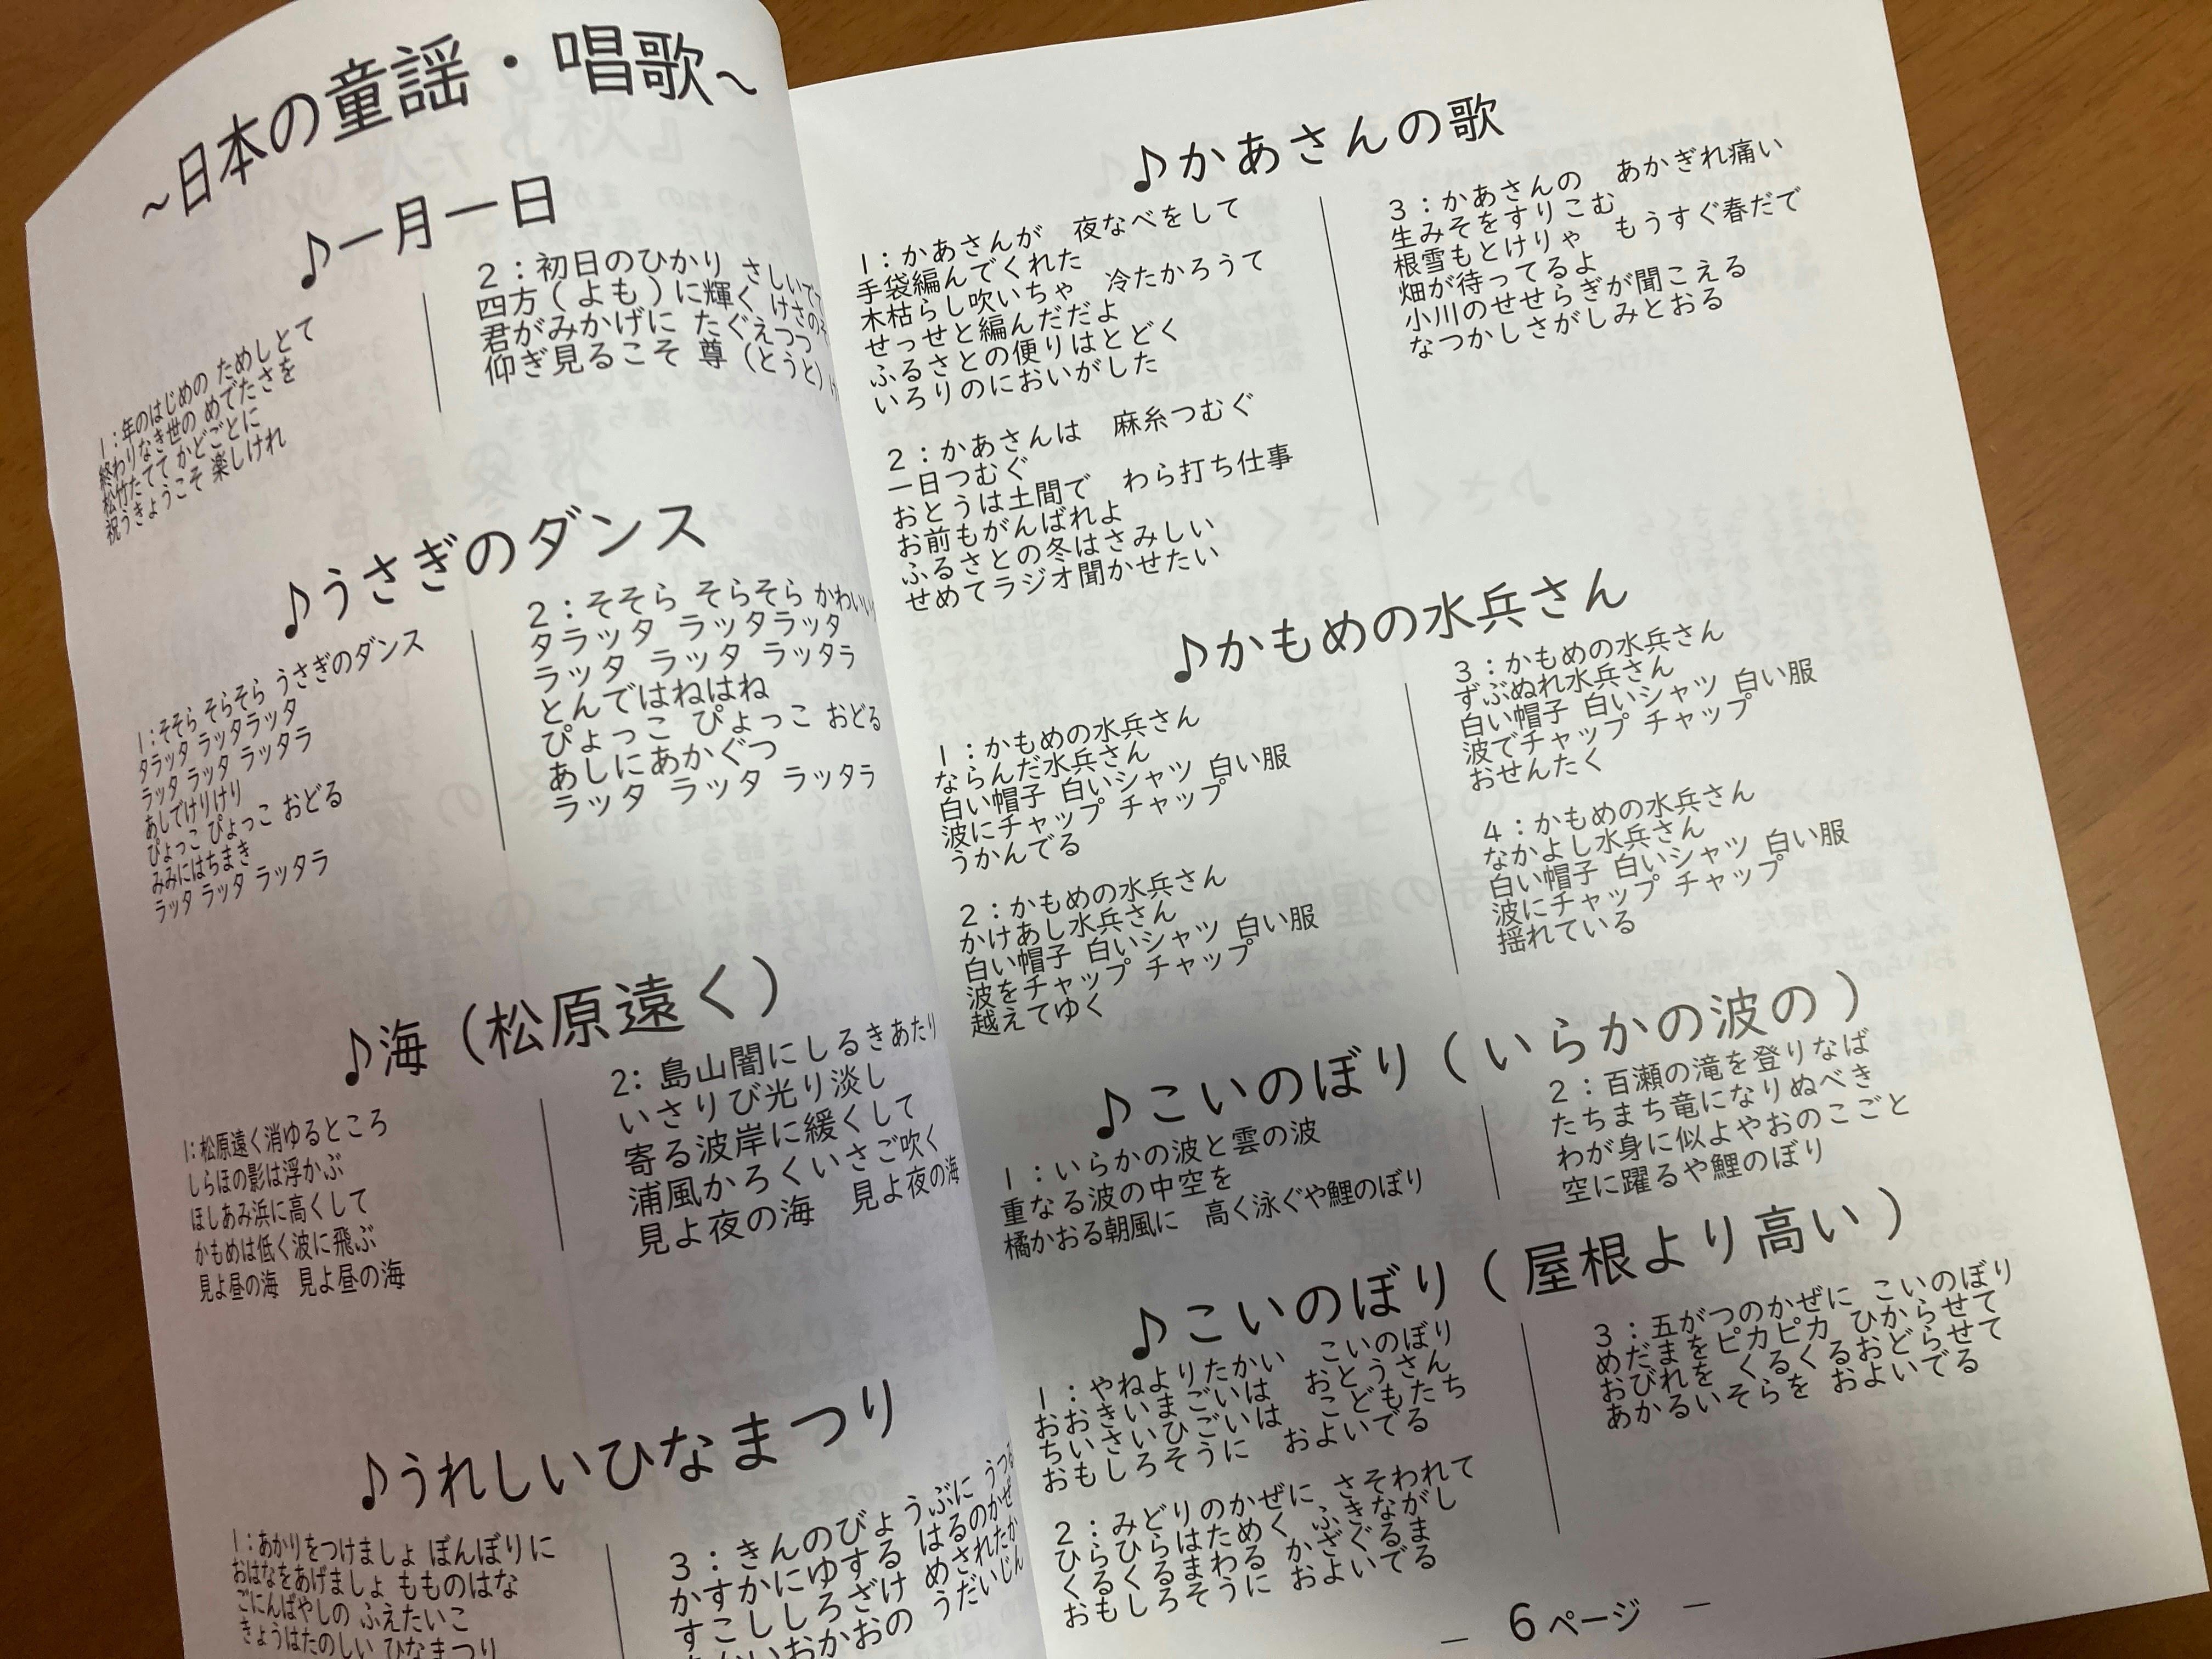 ～日本の童謡・唱歌～
♪一月一日
1：年のはじめの ためしとて
終わりなき世の めでたさを
松竹たてて かどごとに
祝うきょうこそ 楽しけれ
2：初日のひかり さしいで
四方（よも）に輝く けさの
君がみかげに たぐえつつ
仰ぎ見るこそ 尊（とうと）
♪うさぎのダンス
1：そそら そらそら うさぎのダンス
タラッタ ラッタラッタ
ラッタ ラッタ ラッタラ
あしでけりけり
ぴょっこ ぴょっこ おどる
みみにはちまき
ラッタ ラッタ ラッタラ
2：そそら そらそら かわいい
タラッタ ラッタラッタ
ラッタ ラッタ ラッタラ
とんではねはね
ぴょっこ ぴょっこ おどる
あしにあかぐつ
ラッタ ラッタ ラッタラ
♪海（松原遠く）
1：松原遠く消ゆるところ
しらほの影は浮かぶ
ほしあみ浜に高くして
かもめは低く波に飛ぶ
見よ昼の海 見よ昼の海
2：島山闇にしるきあたり
いさりび光り淡し
寄る波岸に緩くして
浦風かろくいさご吹く
見よ夜の海 見よ夜の海
♪うれしいひなまつり
1：あかりをつけましょ ぼんぼりに
おはなをあげましょ もものはな
ごにんばやしの ふえたいこ
きょうはたのしい ひなまつり
3：きんのびょうぶに うつる
かすかにゆする はるのかぜ
すこししろざけ めされたか
あかいおかおの うだいじん
♪かあさんの歌
1：かあさんが 夜なべをして
手袋編んでくれた
木枯らし吹いちゃ 冷たかろうて
せっせと編んだだよ
ふるさとの便りはとどく
いろりのにおいがした
2：かあさんは 麻糸つむぐ
一日つむぐ
おとうは土間で わら打ち仕事
お前もがんばれよ
ふるさとの冬はさみしい
せめてラジオ聞かせたい
3：かあさんの あかぎれ痛い
生みそをすりこむ
根雪もとけりゃ もうすぐ春だで
畑が待ってるよ
小川のせせらぎが聞こえる
なつかしさがしみとおる
♪かもめの水兵さん
1：かもめの水兵さん
ならんだ水兵さん
白い帽子 白いシャツ 白い服
波にチャップ チャップ
うかんでる
2：かもめの水兵さん
かけあし水兵さん
白い帽子 白いシャツ 白い服
波をチャップ チャップ
越えてゆく
3：かもめの水兵さん
ずぶぬれ水兵さん
白い帽子 白いシャツ 白い服
波でチャップ チャップ
おせんたく
4：かもめの水兵さん
なかよし水兵さん
白い帽子 白いシャツ 白い服
波にチャップ チャップ
揺れている
♪こいのぼり（いらかの波の）
1：いらかの波と雲の波
重なる波の中空を
橘かおる朝風に 高く泳ぐや鯉のぼり
2：百瀬の滝を登りなば
たちまち竜になりぬべき
わが身に似よやおのこごと
空に躍るや鯉のぼり
♪こいのぼり（屋根より高い）
1：やねよりたかい こいのぼり
おおきいまごいは おとうさん
ちいさいひごいは こどもたち
おもしろそうに およいでる
2：みどりのかぜに さそわれて
ひらひらはためく ふきながし
くるくるまわる かざぐるま
おもしろそうに およいでる
3：五がつのかぜに こいのぼり
めだまをピカピカ ひからせて
おびれを くるくる おどらせて
あかるいそらを およいでる
－ 6ページ －